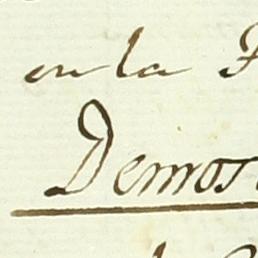 en la
Demos